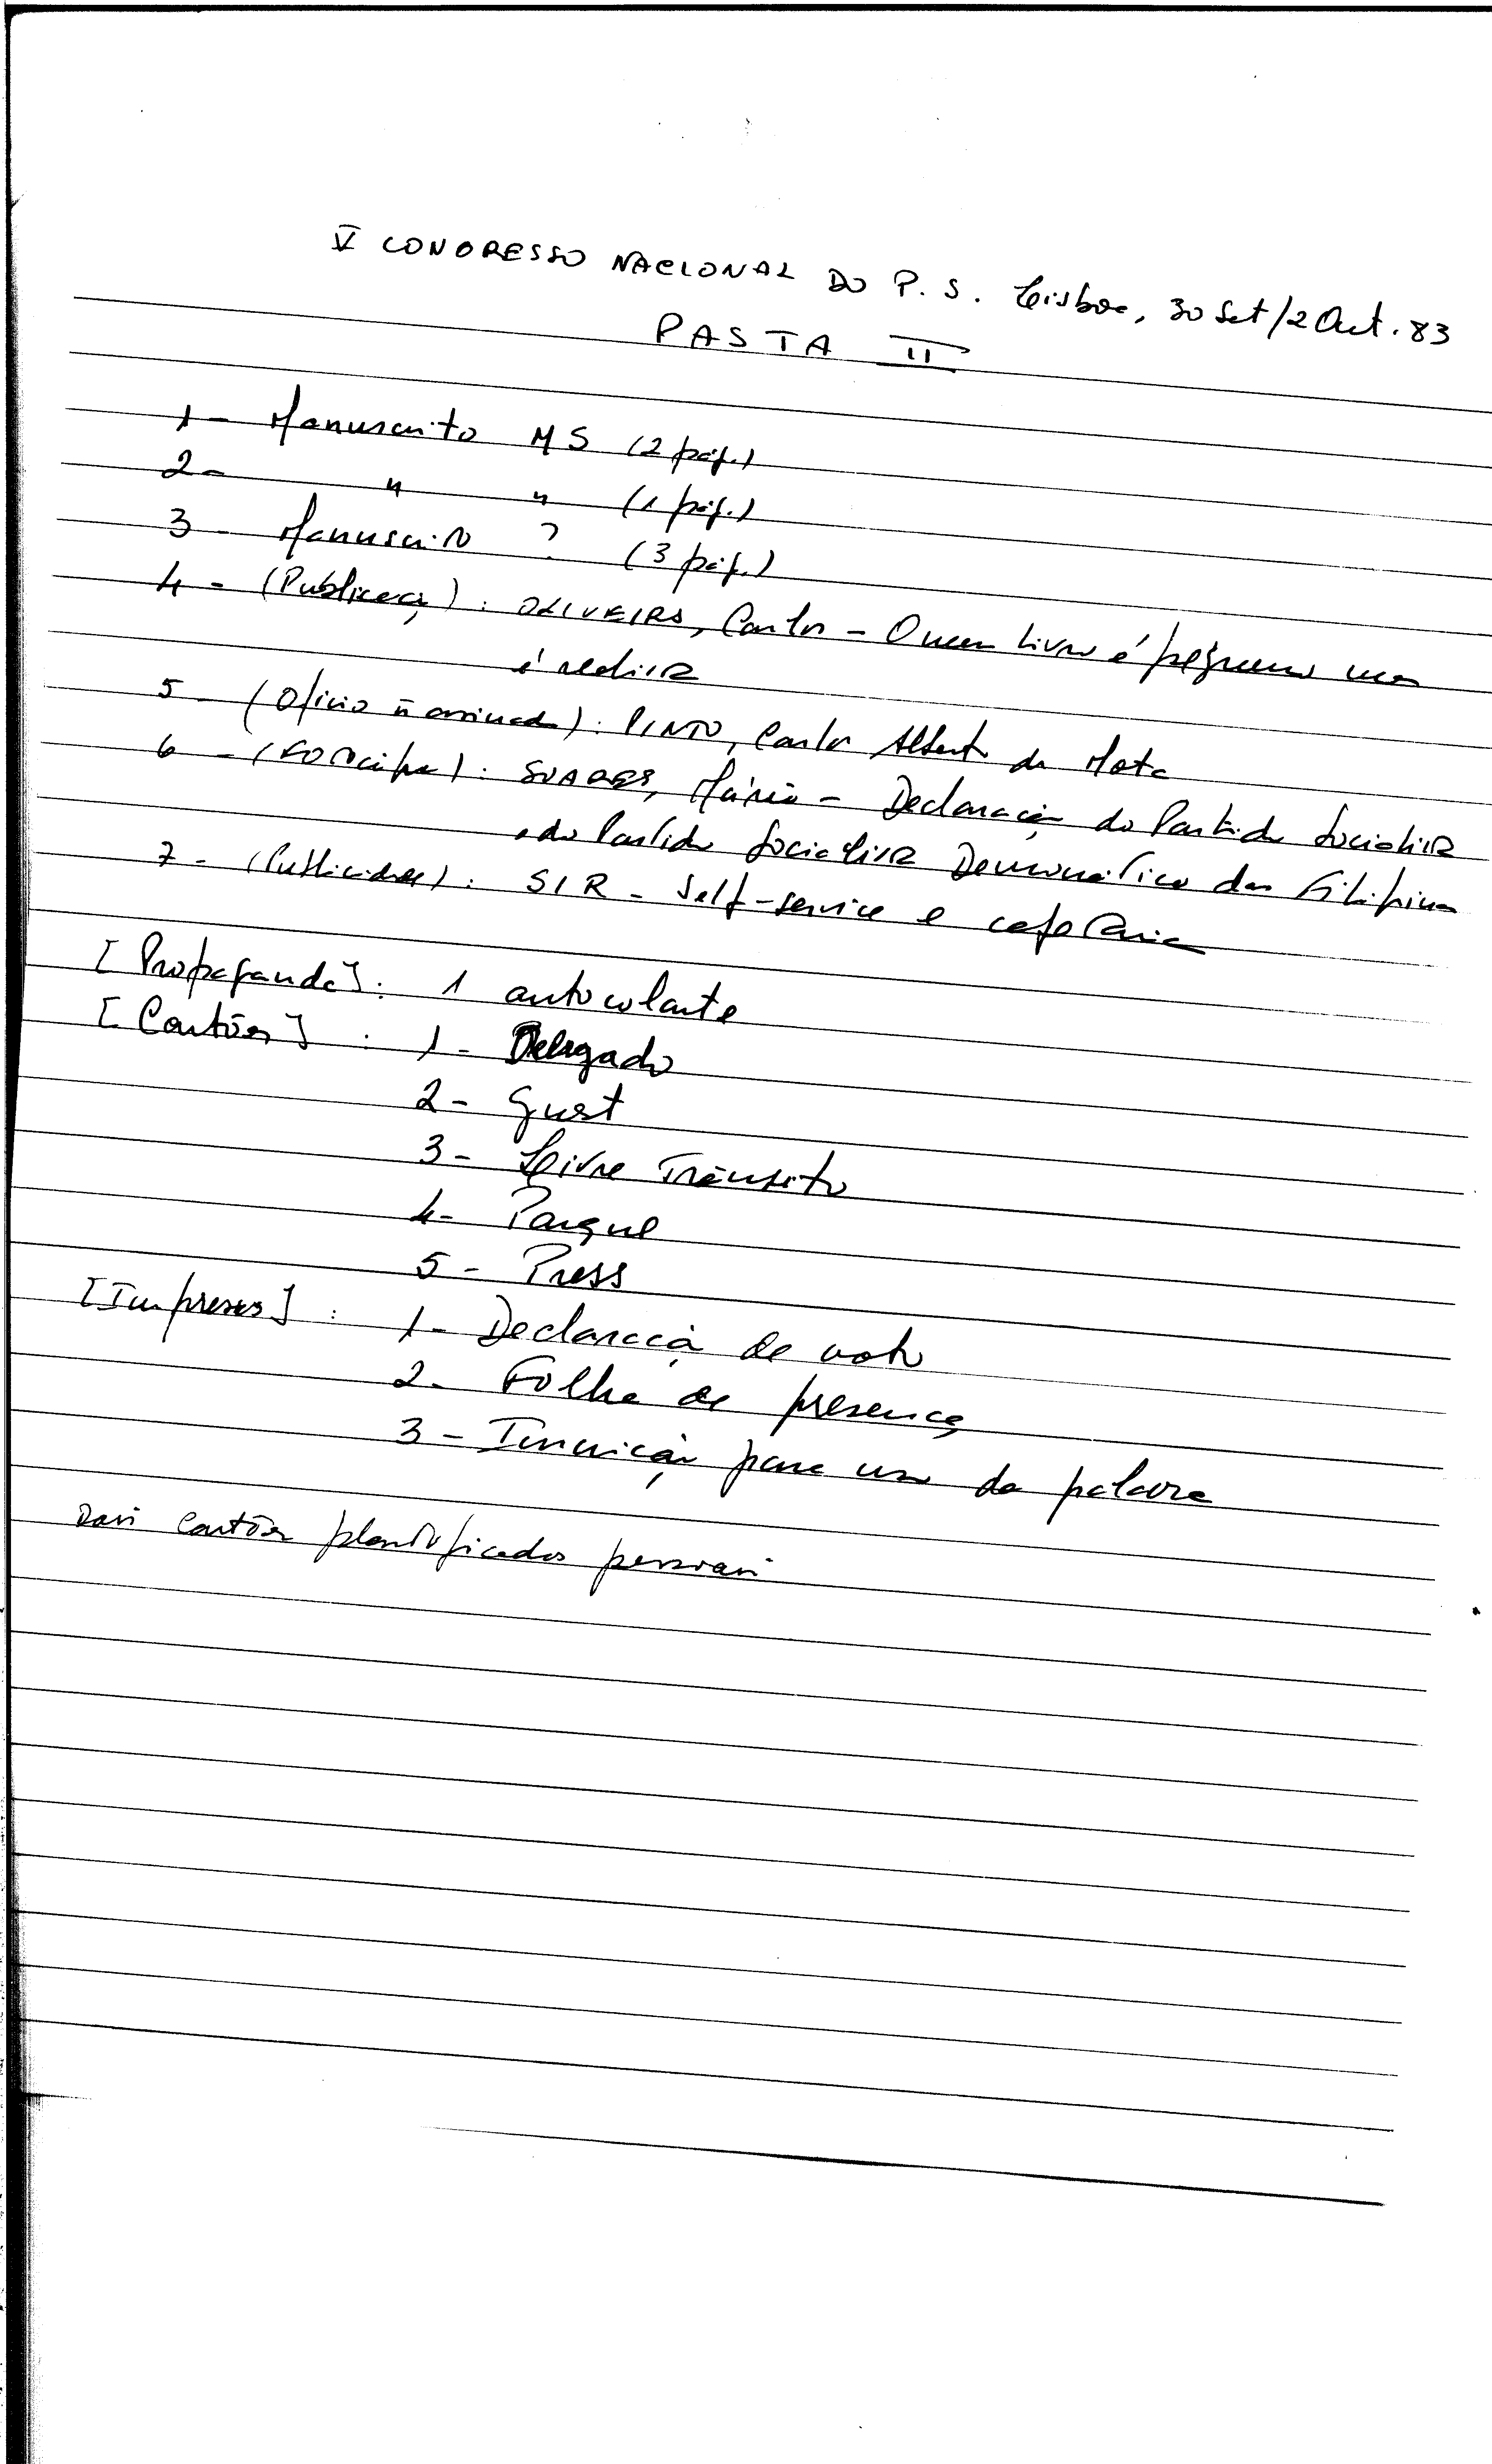 V CONGRESSO NACIONAL DO P. S. Lisboa, 30 Set/2 Out. 83
PASTA II
1 - Manuscrito MS (2 pág.)
2 - " " (1 pág.)
3 - Manuscrito ? (3 pág.)
4 - (Publicaç) : OLIVEIRA, Carlos - O meu livro é pequeno mas
é realista
5 - (Ofício ñ assinado) : PINTO, Carlos Alberto da Mota
6 - (Fotocópia) : SOARES, Mário - Declaração do Partido Socialista
e do Partido Socialista Democrático das Filipinas
7 - (Publicidade) : SIR - Self-service e cafetaria
[Propaganda] : 1 autocolante
[Cartões] : 1 - Delegado
2 - Guest
3 - Livre Trânsito
4 - Parque
5 - Press
[Impresos] : 1 - Declaração de voto
2 - Folha de presença
3 - Inscrição para uso da palavra
Dois cartões plastificados pessoais